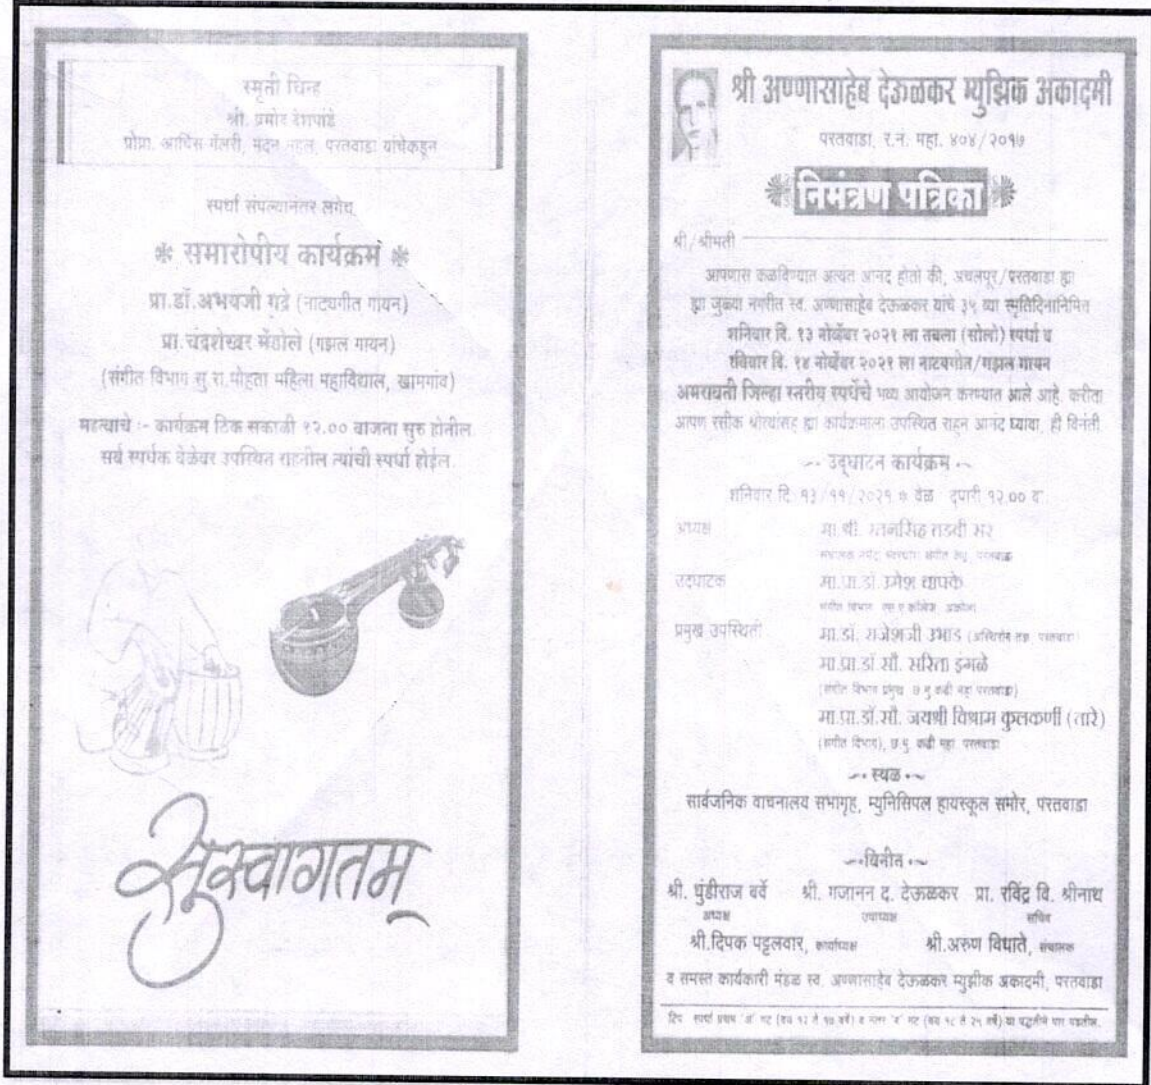 स्मृती चिन्ह
श्री. प्रमोद देशपांडे
प्रोप्रा. गॅलरी, मदन महल, परतवाडा यांचेकडून
स्पर्धा संपल्यानंतर लगेच
समारोपीय कार्यक्रम
प्रा.डॉ.अभयजी गद्रे (नाट्यगीत गायन)
प्रा.चंद्रशेखर मेंडोले (गझल गायन)
(संगीत विभाग सु.रा.मोहता महिला महाविद्याल, खामगांव)
महत्वाचे :- कार्यक्रम ठिक सकाळी १२.०० वाजता सुरु होतील
सर्व स्पर्धक वेळेवर उपस्थित राहतील त्यांची स्पर्धा होईल.
सुस्वागतम्
श्री अण्णासाहेब देऊळकर म्युझिक अकादमी
परतवाडा, र.नं. महा. ४०४/२०१७
निमंत्रण पत्रिका
श्री/श्रीमती
आपणास कळविण्यात अत्यंत आनंद होतो की, अचलपूर/परतवाडा ह्या
ह्या जुळ्या नगरीत स्व. अण्णासाहेब देऊळकर यांचे ३५ व्या स्मृतिदिनानिमित्त
शनिवार दि. १३ नोव्हेंबर २०२१ ला तबला (सोलो) स्पर्धा व
रविवार दि. १४ नोव्हेंबर २०२१ ला नाट्यगीत/गझल गायन
अमरावती जिल्हा स्तरीय स्पर्धेचे भव्य आयोजन करण्यात आले आहे. करीता
आपण रसीक श्रोत्यांसह ह्या कार्यक्रमाला उपस्थित राहून आनंद घ्यावा, ही विनंती
उद्घाटन कार्यक्रम
शनिवार दि. १३/११/२०२१ वेळ दुपारी १२.०० व
अध्यक्ष मा.श्री. रतनसिंह तडवी सर
परतवाडा
उद्घाटक मा.प्रा.डॉ. उमेश चापके
संगीत विभाग अकोला
प्रमुख उपस्थिती मा.डॉ. राजेशजी उभाड (अस्थिरोग तज्ञ, परतवाडा)
मा.प्रा.डॉ.सौ. सरिता इंगळे
(संगीत विभाग प्रमुख छ.मु.कढी महा परतवाडा)
मा.प्रा.डॉ.सौ. जयश्री विश्राम कुलकर्णी (तारे)
(संगीत विभाग), छ.मु. कढी महा. परतवाडा
स्थळ
सार्वजनिक वाचनालय सभागृह, म्युनिसिपल हायस्कूल समोर, परतवाडा
विनीत
श्री. धुंडीराज बर्वे श्री. गजानन द. देऊळकर प्रा. रविंद्र वि. श्रीनाथ
अध्यक्ष उपाध्यक्ष सचिव
श्री.दिपक पट्टलवार, कार्याध्यक्ष श्री.अरुण विधाते, संचालक
व समस्त कार्यकारी मंडळ स्व. अण्णासाहेब देऊळकर म्युझीक अकादमी, परतवाडा
टिप स्पर्धा प्रथम 'अ' गट (वय १२ ते १७ वर्षे) व नंतर 'ब' गट (वय १८ ते २५ वर्षे) या पद्धतीने पार पडतील.